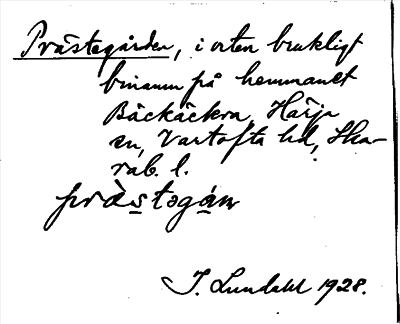 Prästegården, i orten brukligt
binamn på hemmanet
Bäckåckra, Härja
sn, Vartofta hd, Ska-
rab. l.
prästəgán
J. Lundahl 1928.